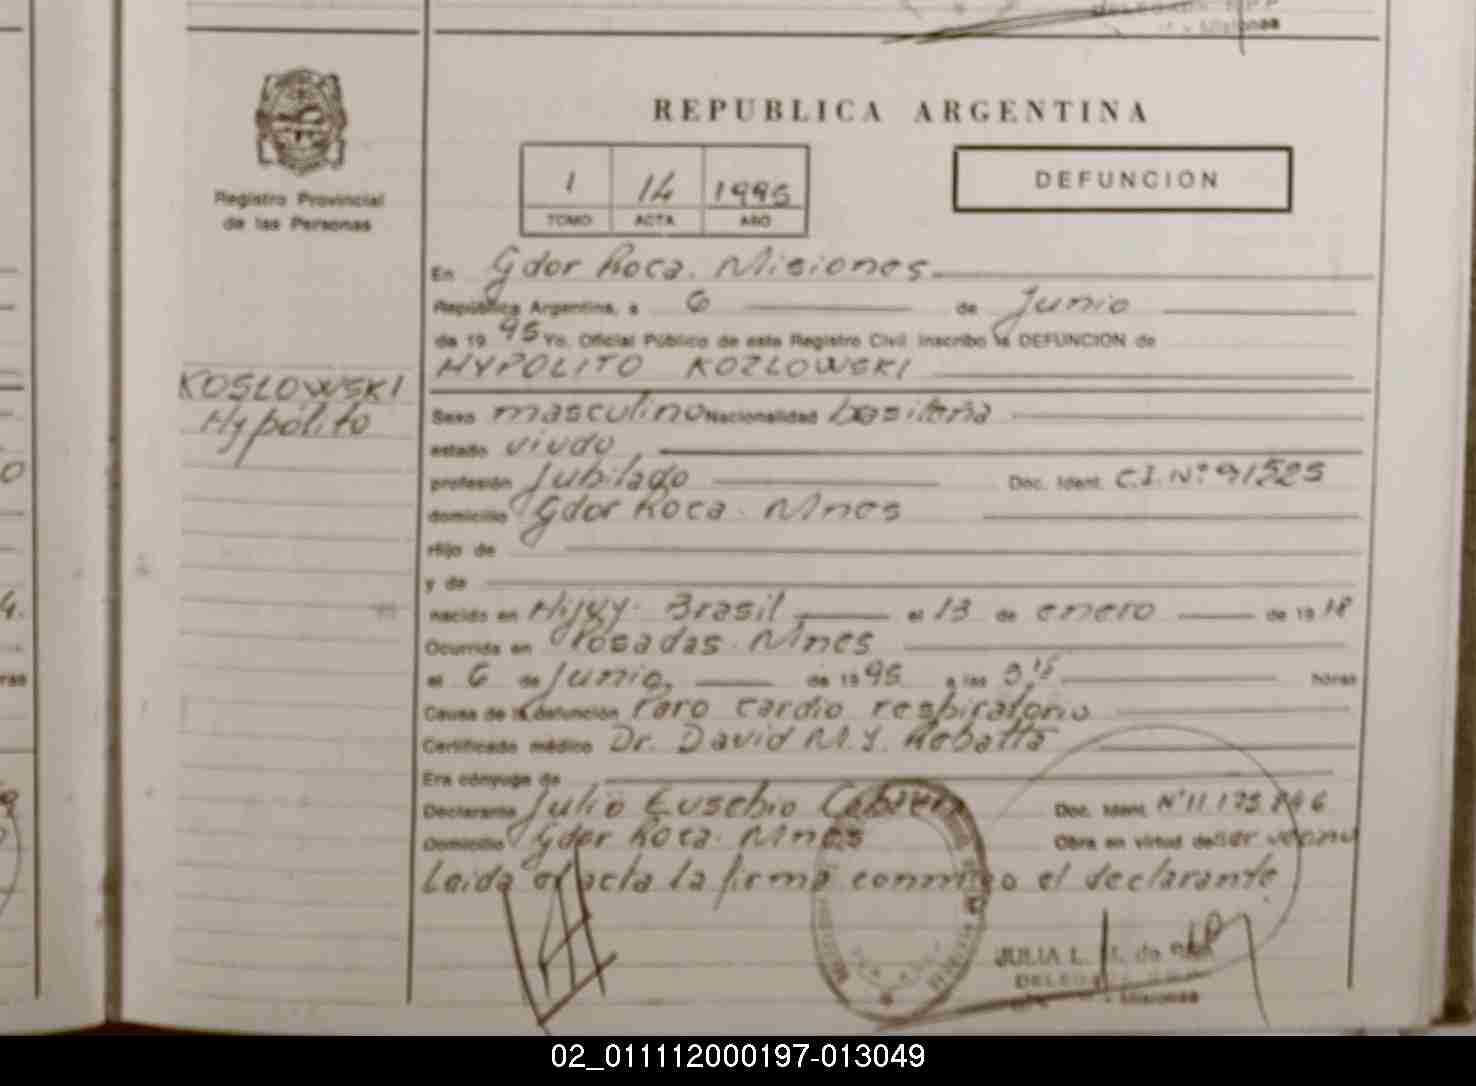 REPUBLICA ARGENTINA
Registro Provincial
de las Personas
1 14 1995
TOMO ACTA AÑO
DEFUNCION
En Gdor Roca. Misiones
República Argentina, a 6 de Junio
de 19 95 Yo, Oficial Público de este Registro Civil inscribo la DEFUNCION de
HYPOLITO KOZLOWSKI
KOSLOWSKI
Hypólito
Sexo masculino Nacionalidad brasileña
estado viudo
profesión Jubilado Doc. Ident. C.I. Nº 91525
domicilio Gdor Roca. Mnes
Hijo de
y de
nacido en Brasil el 13 de enero de 19 18
Ocurrida en Posadas. Mnes
el 6 de Junio, de 19 95 a las 9,15 horas
Causa de la defunción Paro cardio respiratorio
Certificado médico Dr. David M.Y. Rebatta
Era cónyuge de
Declarante Julio Eusebio Cabrera Doc. Ident. Nº 11.175.846
Domicilio Gdor Roca. Mnes Obra en virtud de ser vecino
Leida el acta la firma conmigo el declarante
JULIA L. de
Misiones
02_011112000197-013049